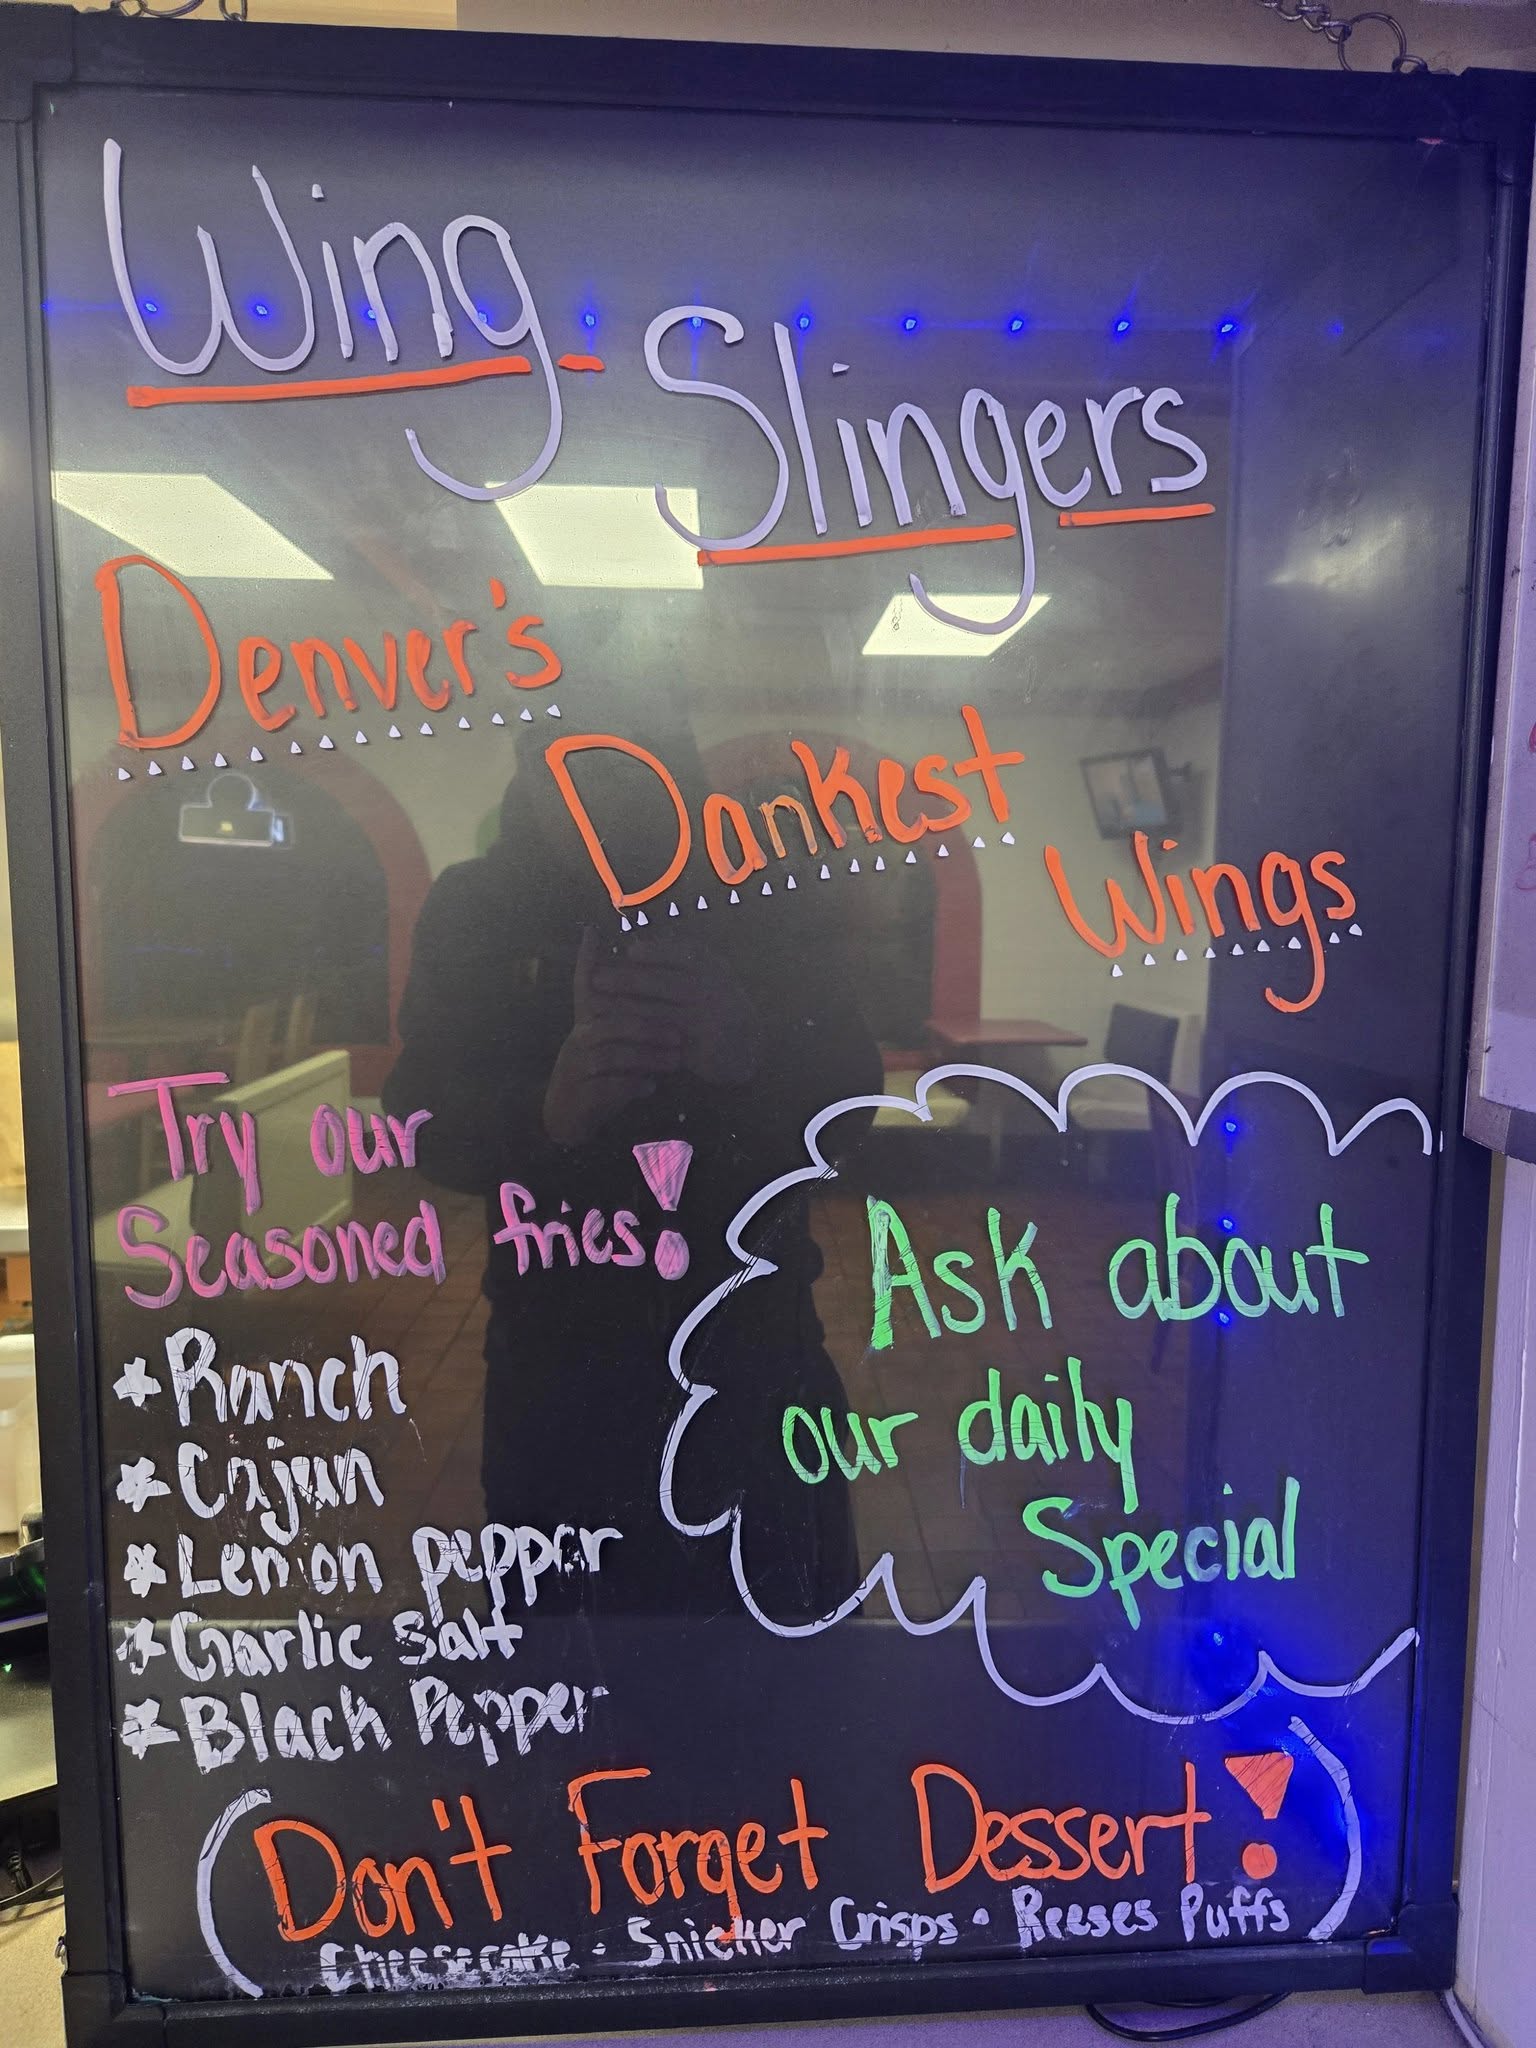 Wing-Slingers
Denver's
Dankest
Wings
Try our
Seasoned fries!
Ranch
Cajun
Lemon pepper
Garlic salt
Black Pepper
Ask about
our daily
Special
Don't Forget Dessert!
Cheesecake · Snicker Crisps · Reeses Puffs